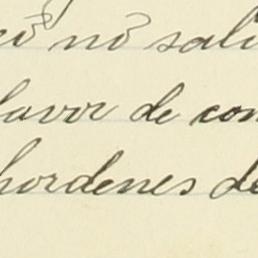 nó sali
favor de con
hordenes de